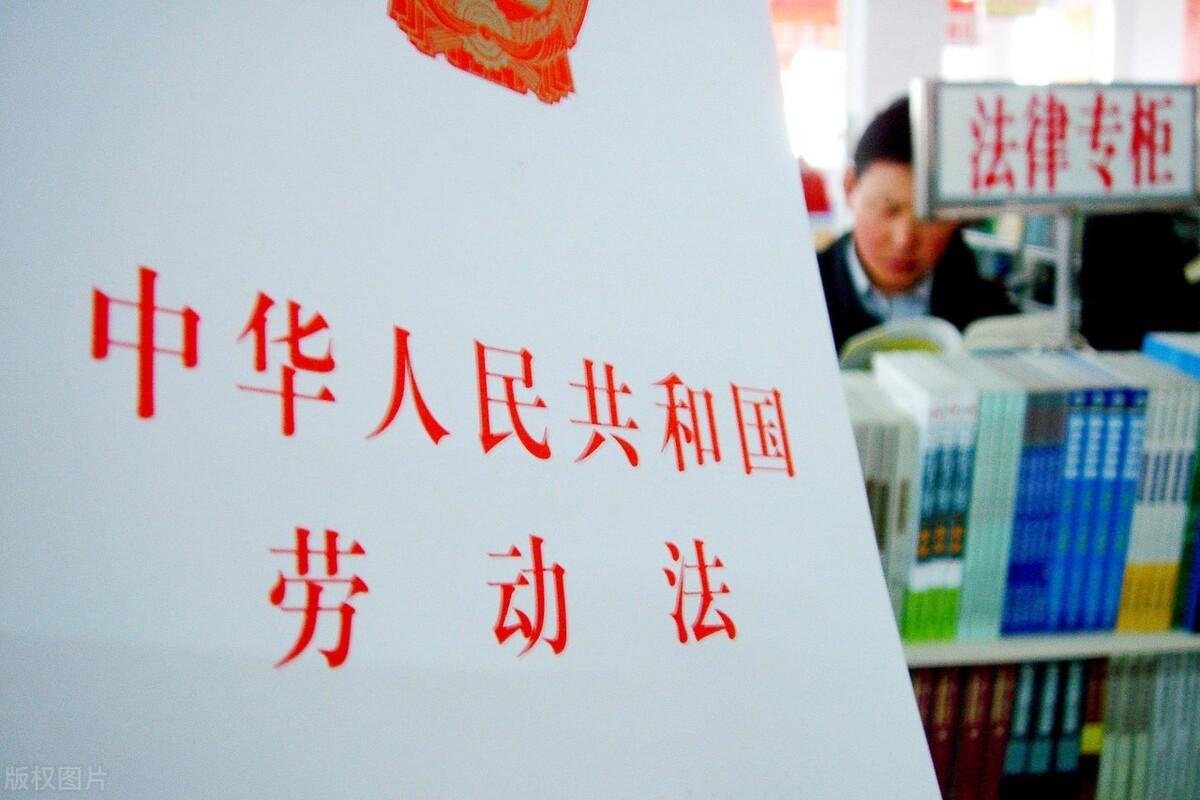 中华人民共和国
劳动法
法律专柜
版权图片